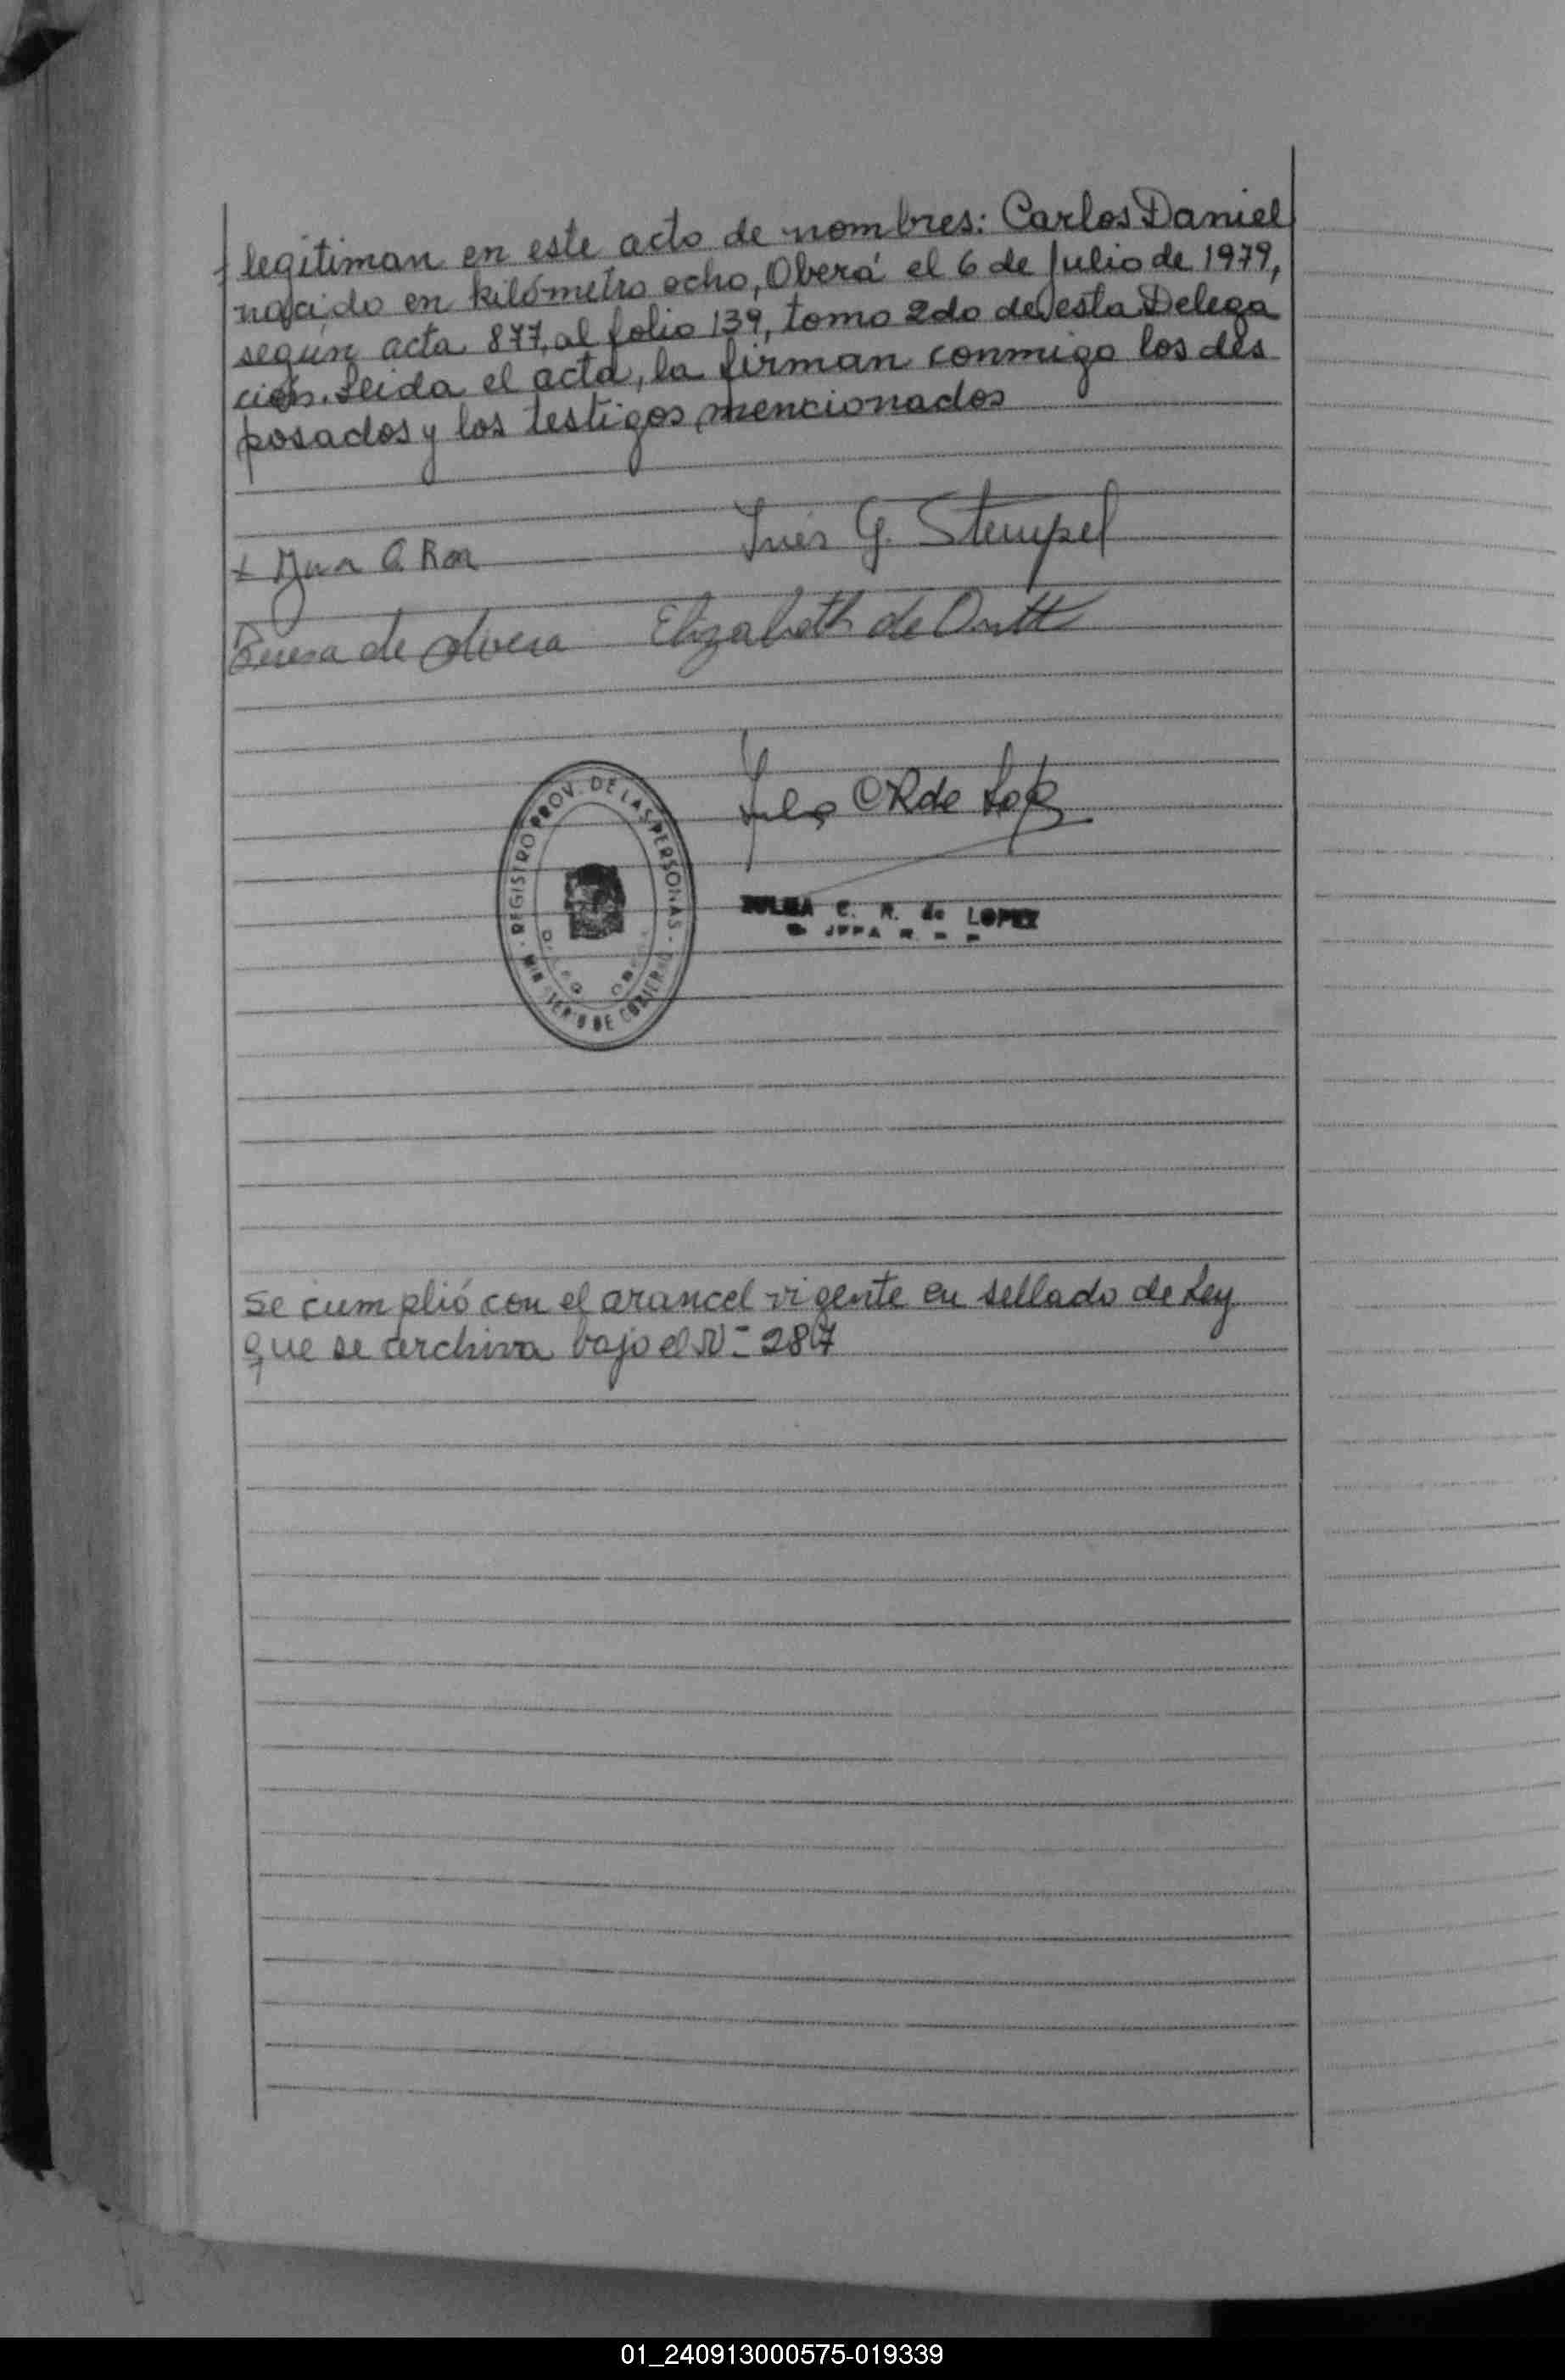 legitiman en este acto de nombres: Carlos Daniel
nacido en kilómetro ocho, Oberá el 6 de Julio de 1979,
según acta 877, al folio 139, tomo 2do de esta Delega
ción. Leida el acta, la firman conmigo los des
posados y los testigos mencionados
Inés G. Stempel
de Elizabeth de
REGISTRO PROV. DE LAS PERSONAS - MINISTERIO DE GOBIERNO
C. R. de LOPEZ
JEFA
Se cumplió con el arancel vigente en sellado de Ley
que se archiva bajo el Nº 287
01_240913000575-019339